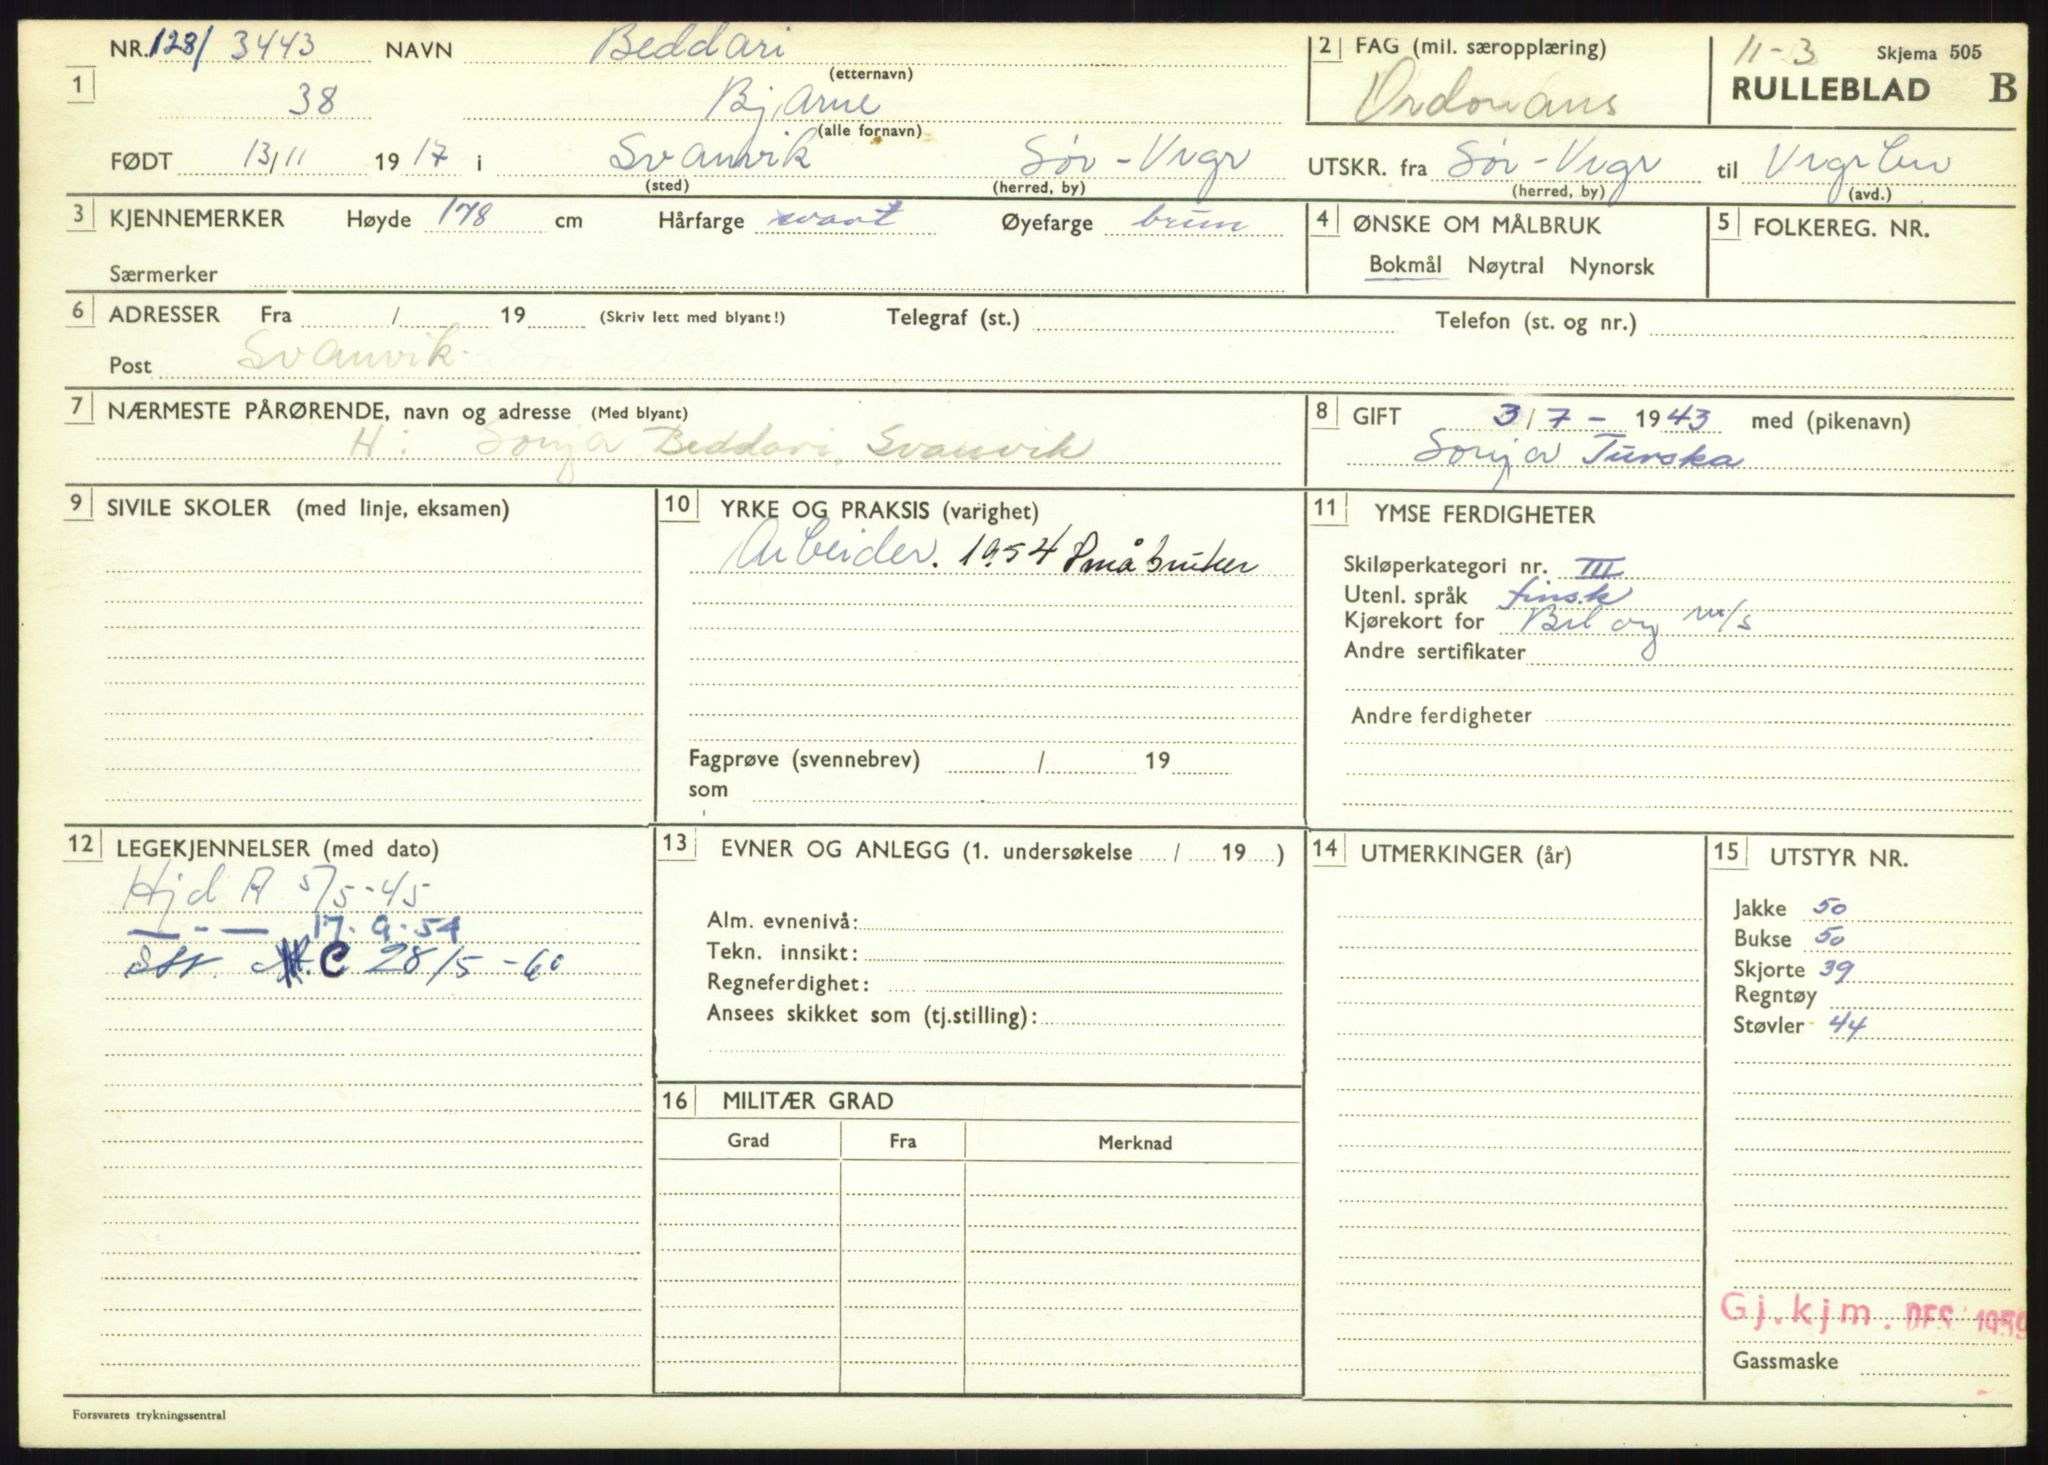 NR. 128/ 3443 NAVN Beddari 2 FAG (mil. særopplæring) 11-3 Skjema 505
(etternavn)
1 38 Bjarne Ordonans RULLEBLAD B
(alle fornavn)
FØDT 13/11 1917 i Svanvik Sør-Vrgr UTSKR. fra Sør-Vrgr til
(sted) (herred, by) (herred, by) (avd.)
3 KJENNEMERKER Høyde 178 cm Hårfarge svart Øyefarge brun 4 ØNSKE OM MÅLBRUK 5 FOLKEREG. NR.
Særmerker Bokmål Nøytral Nynorsk
6 ADRESSER Fra / 19 (Skriv lett med blyant!) Telegraf (st.) Telefon (st. og nr.)
Post Svanvik
7 NÆRMESTE PÅRØRENDE, navn og adresse (Med blyant) 8 GIFT 3/7 - 1943 med (pikenavn)
H: Sonja Beddari, Svanvik Sonja Turska
9 SIVILE SKOLER (med linje, eksamen) 10 YRKE OG PRAKSIS (varighet) 11 YMSE FERDIGHETER
Arbeider. 1954 Småbruker
Skiløperkategori nr. III
Utenl. språk finsk
Kjørekort for Bil og m/s
Andre sertifikater
Andre ferdigheter
Fagprøve (svennebrev) / 19
som
12 LEGEKJENNELSER (med dato) 13 EVNER OG ANLEGG (1. undersøkelse / 19 ) 14 UTMERKINGER (år) 15 UTSTYR NR.
Hjd A 5/5-45
— - — 17-9-54
C 28/5-60
Alm. evnenivå:
Tekn. innsikt:
Regneferdighet:
Ansees skikket som (tj.stilling):
Jakke 50
Bukse 50
Skjorte 39
Regntøy
Støvler 44
16 MILITÆR GRAD
Grad Fra Merknad
Gj.kjm. DES 1959
Gassmaske
Forsvarets trykningssentral